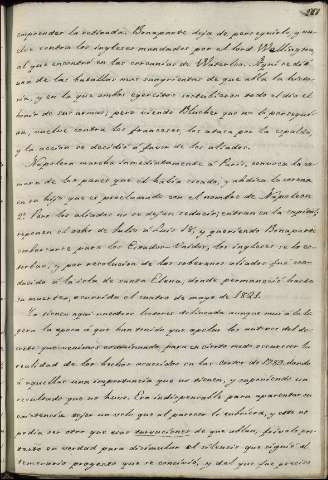 emprender la retirada: Bonaparte deja de perseguirlo, y vuelve
contra los ingleses mandados por el lord Wellington,
al que encontró en las cercanías de Waterloo. Aquí se dió
una de las batallas mas sangrientas de que habla la historia,
y en la que ambos ejércitos sostubieron todo el dia el
honor de sus armas; pero viendo Blucher que no lo perseguian,
vuelve contra los franceses, los ataca por la espalda,
y la accion se decidió á favor de los aliados.
Napoleon marcha inmediatamente á Paris, convoca la camara
de los pares que él habia creado, y abdica la corona
en su hijo que es proclamado con el nombre de Napoleon
2º Pero los aliados no se dejan seducir; entran en la capital,
reponen el ocho de Julio á Luis 18, y queriendo Bonaparte
embarcarse para los Estados-Unidos, los ingleses se lo estorban,
y por resolucion de los soberanos aliados fué conducido
á la isla de santa Elena, donde permaneció hasta
su muerte, ocurrida el cuatro de mayo de 1821.
Ya tienen aqui nuestros lectores delineada aunque mui á la ligera
la época á que han tenido que apelar los autores del decreto
que venimos examinando, para en cierto modo oscurecer la
realidad de los hechos acaecidos en las Cortes de 1789, dando
á aquellas una importancia que no tienen, y suponiendo un
resultado que no hubo. Era indispensable para aparentar su
existencia dejar un velo que al parecer lo cubriera, y este no
podia ser otro que esas turvaciones de que hablan, frívolo pretexto
en verdad para disimular el silencio que siguió al
temerario proyecto que se concluyó, y del que fué preciso